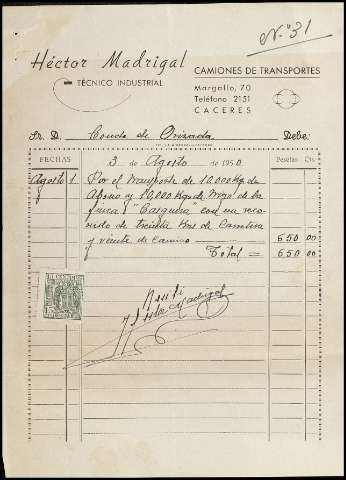 Nº 31
Héctor Madrigal
TÉCNICO INDUSTRIAL
CAMIONES DE TRANSPORTES
Margallo, 70
Teléfono 2151
CACERES
Sr. D. Conde de Debe:
FECHAS 3 de Agosto de 1950 Pesetas Cts.
Agosto 1 Por el transporte de 10.000 Kg. de
Abono y 10.000 Kgs. de trigo de la
finca " " con un reco-
rrido de treinta Kms de Carretera
y veinte de Camino 650 00
Total = 650 00
Recibí
Héctor Madrigal